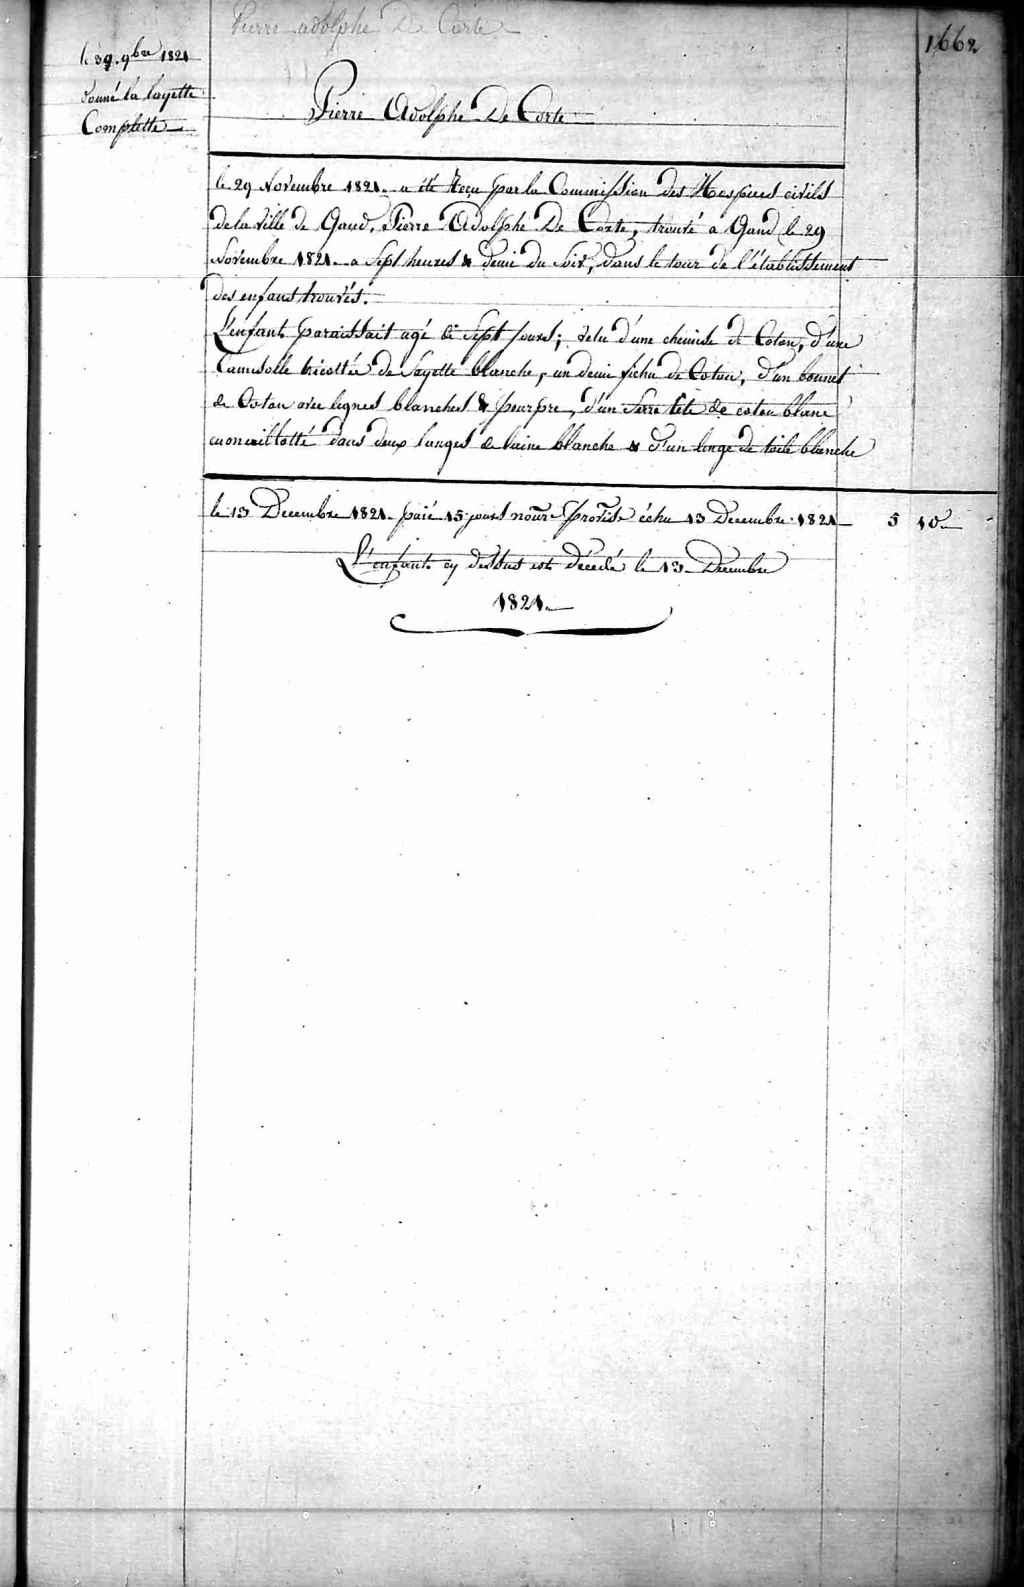 Pierre adolphe De Corte
1662
le 29. 9bre 1821
donné la layette
Complette
Pierre Adolphe De Corte
le 29 Novembre 1821. a été Reçu par la Commission des Hospices civils
de la ville de Gand, Pierre Adolphe De Corte, trouvé a Gand le 29
Novembre 1821. a Sept heures & demie du Soir, dans le tour de l'établissement
des enfans trouvés.
L'enfant paraissait agé de Sept jours; vetu d'une chemise de Coton, d'une
Camisolle tricottée de Sayette blanche, un demi fichu de Coton, d'un bonnet
de Coton avec lignes blanches & pourpre, d'un Serre tête de coton blanc
enmaillotté dans deux langes de laine blanche & d'un linge de toile blanche
le 13 Decembre 1821. paié 15 jours nourre Provise échu 13 Decembre 1821 5 10
L'enfant cy dessus est décedé le 13 Decembre
1821.